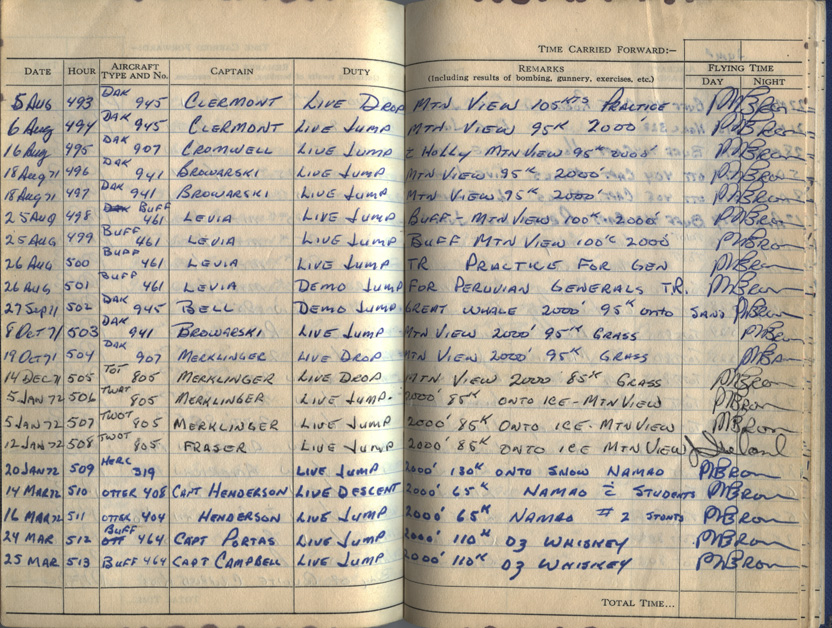 TIME CARRIED FORWARD:—
DATE HOUR AIRCRAFT TYPE AND No. CAPTAIN DUTY REMARKS (Including results of bombing, gunnery, exercises, etc.) FLYING TIME DAY NIGHT
5 AUG 493 DAK 945 CLERMONT LIVE DROP MTN VIEW 105KTS PRACTICE
6 Aug 494 DAK 945 CLERMONT LIVE JUMP MTN VIEW 95K 2000'
16 Aug 495 DAK 907 CROMWELL LIVE JUMP C HOLLY MTN VIEW 95K 2000'
18 Aug 71 496 DAK 941 BROWARSKI LIVE JUMP MTN VIEW 95K 2000'
18 Aug 71 497 DAK 941 BROWARSKI LIVE JUMP MTN VIEW 95K 2000'
25 Aug 498 DAK BUFF 461 LEVIA LIVE JUMP BUFF - MTN VIEW 100K 2000'
25 AUG 499 BUFF 461 LEVIA LIVE JUMP BUFF MTN VIEW 100K 2000'
26 AUG 500 BUFF 461 LEVIA LIVE JUMP TR PRACTICE FOR GEN
26 AUG 501 BUFF 461 LEVIA DEMO JUMP FOR PERUVIAN GENERALS TR.
27 Sep 71 502 DAK 945 BELL DEMO JUMP GREAT WHALE 2000' 95K ONTO SAND
8 OCT 71 503 DAK 941 BROWARSKI LIVE JUMP MTN VIEW 2000' 95K GRASS
19 OCT 71 504 DAK 907 MERKLINGER LIVE DROP MTN VIEW 2000' 95K GRASS
14 DEC 71 505 TOT 805 MERKLINGER LIVE DROP MTN VIEW 2000' 85K GRASS
5 JAN 72 506 TWOT 805 MERKLINGER LIVE JUMP. 2000' 85K ONTO ICE - MTN VIEW
5 JAN 72 507 TWOT 805 MERKLINGER LIVE JUMP 2000' 85K ONTO ICE. MTN VIEW
12 JAN 72 508 TWOT 805 FRASER LIVE JUMP 2000' 85K ONTO ICE MTN VIEW
20 JAN 72 509 HERC 319 LIVE JUMP 2000' 130K ONTO SNOW NAMAO
14 MAR 72 510 OTTER 408 CAPT HENDERSON LIVE DESCENT 2000' 65K NAMAO C STUDENTS
16 MAR 72 511 OTTER 404 HENDERSON LIVE JUMP 2000' 65K NAMAO # 2 STDNTS
24 MAR 512 BUFF OTT 464 CAPT PORTAS LIVE JUMP 2000' 110K DZ WHISKEY
25 MAR 513 BUFF 464 CAPT CAMPBELL LIVE JUMP 2000' 110K DZ WHISKEY
TOTAL TIME...